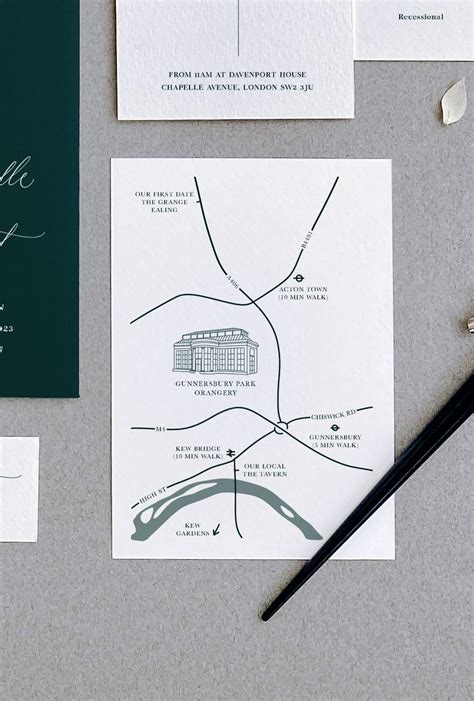 Recessional
FROM 11AM AT DAVENPORT HOUSE
CHAPELLE AVENUE, LONDON SW2 3JU
OUR FIRST DATE
THE GRANGE
EALING
B4491
A406
ACTON TOWN
(10 MIN WALK)
GUNNERSBURY PARK
ORANGERY
CHISWICK RD
M4
GUNNERSBURY
(5 MIN WALK)
KEW BRIDGE
(10 MIN WALK)
OUR LOCAL
THE TAVERN
HIGH ST
KEW
GARDENS